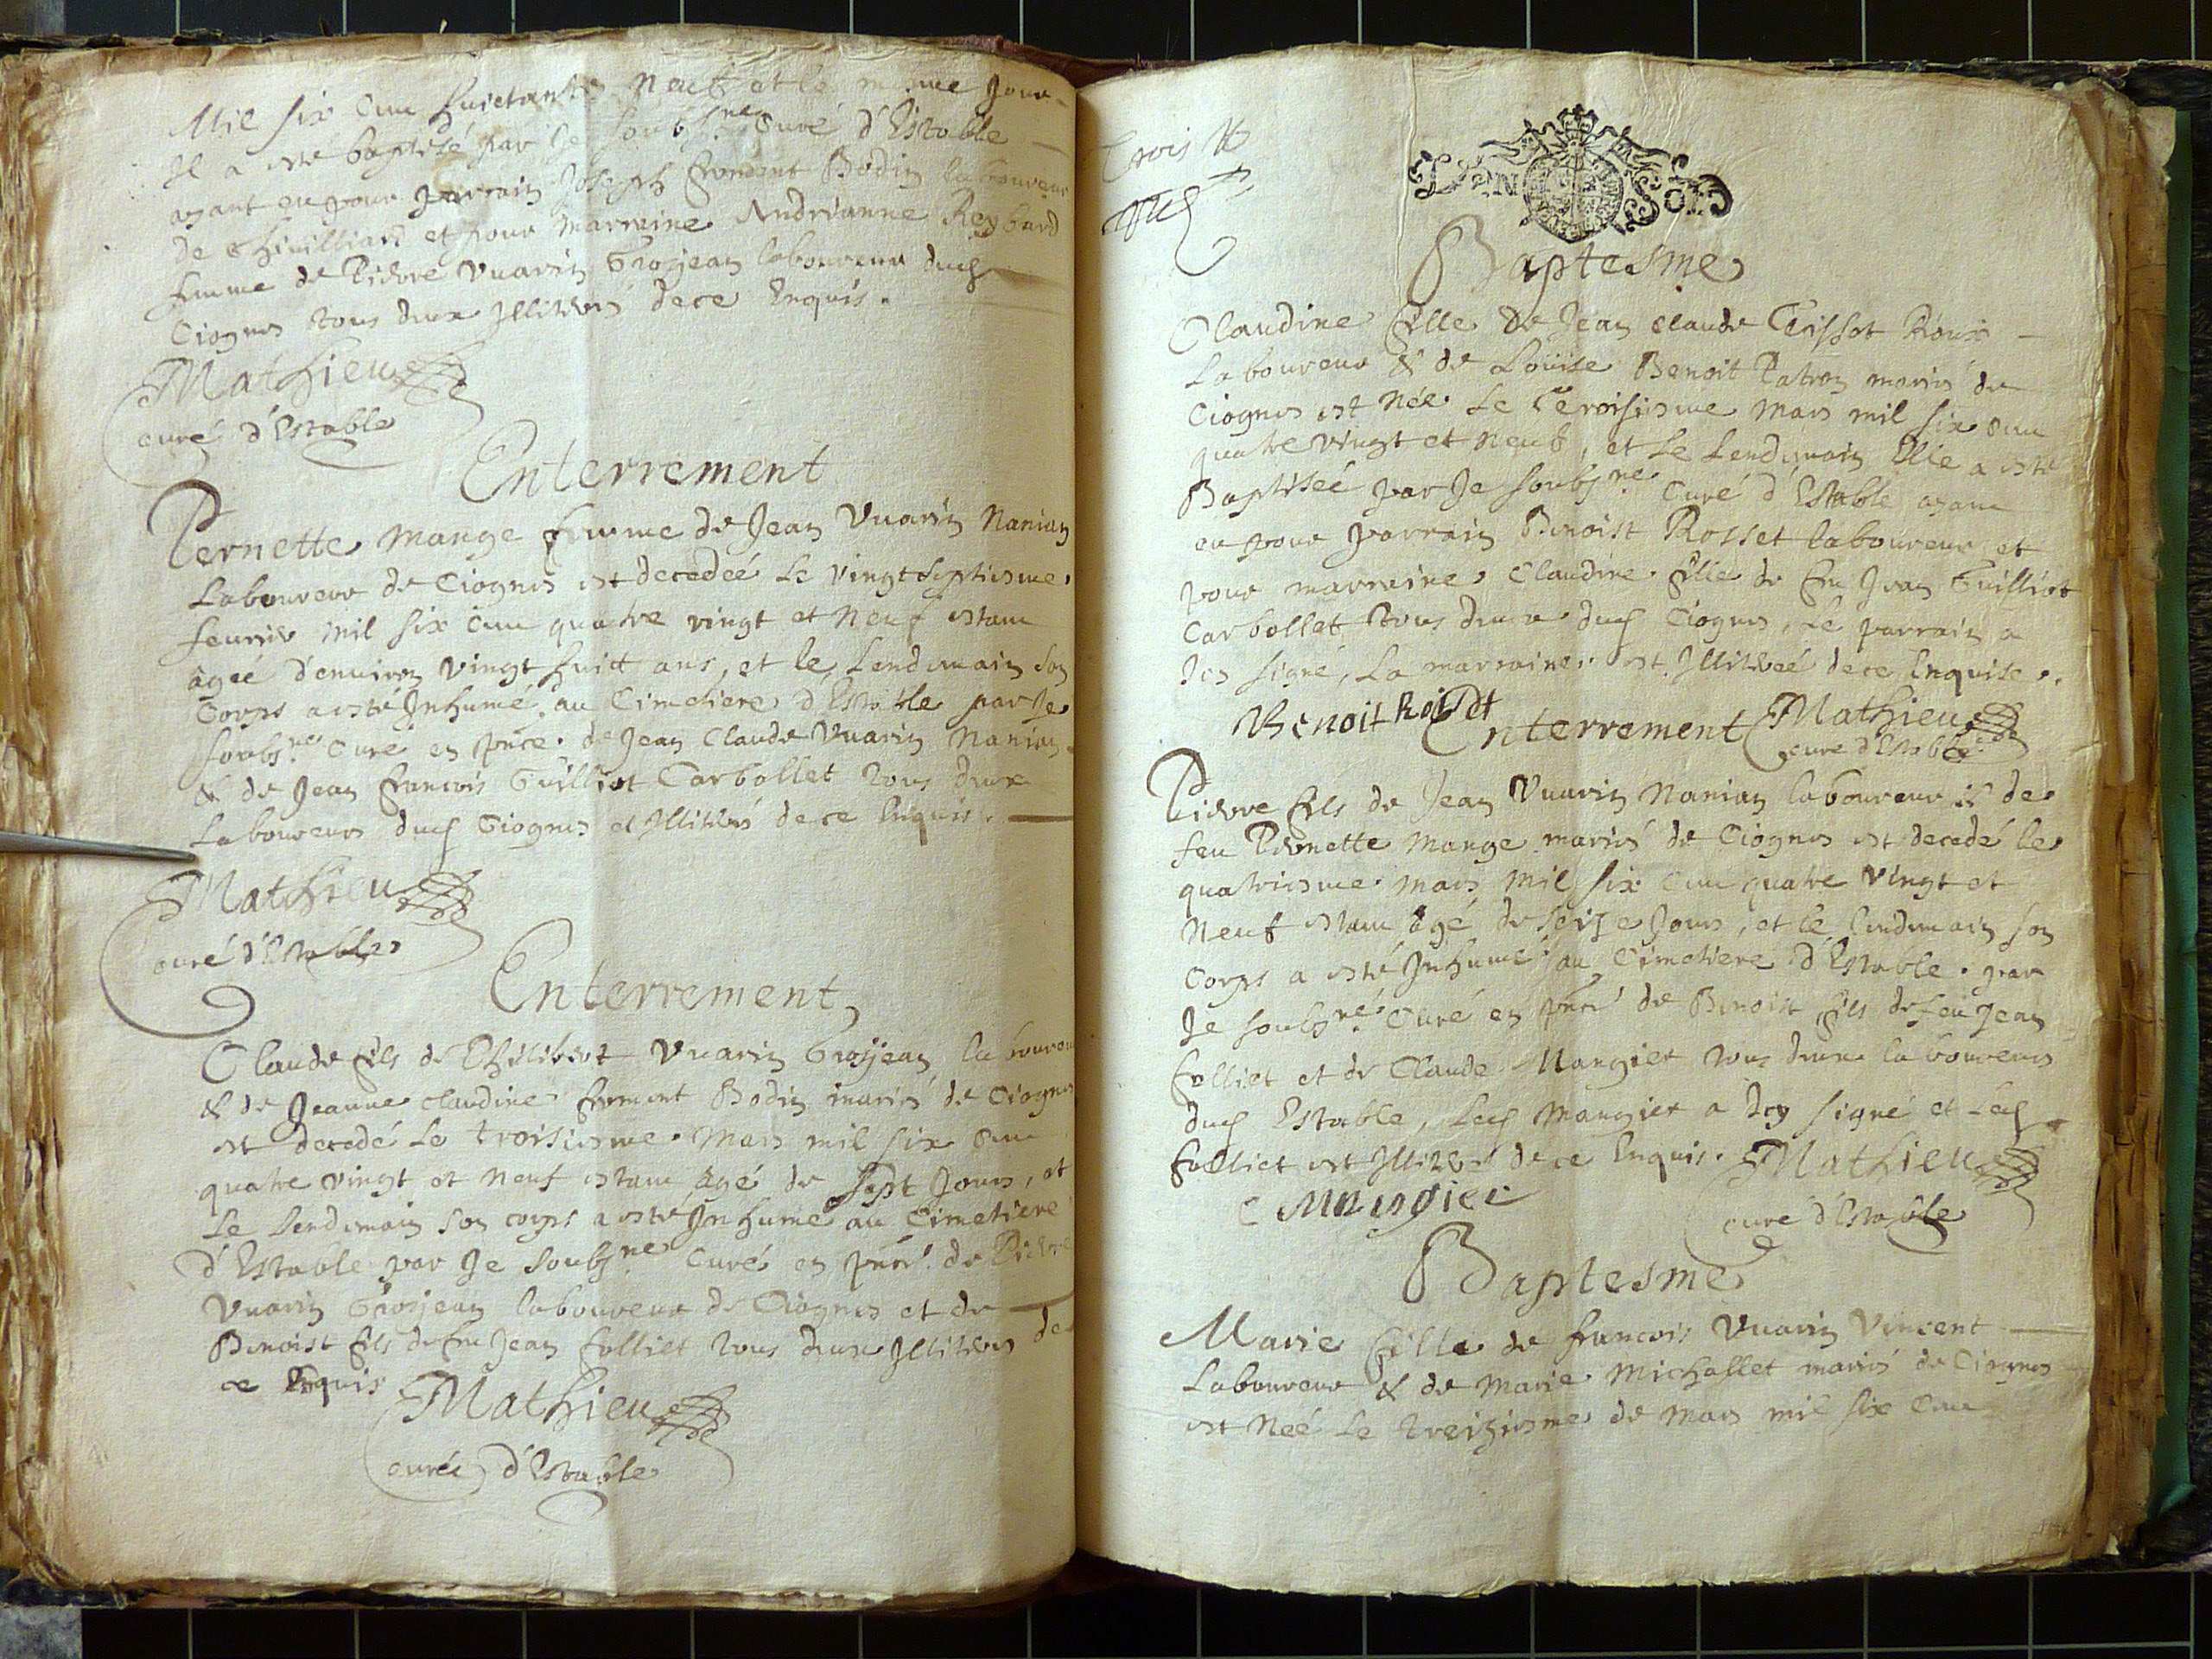 Mil six cent huictante neuf et le mesme jour
Il a esté baptisé par je soubsne Curé d'Estable
ayant eu pour parrain Joseph froment Bodin laboureur
de Chivilliard et pour marraine Andréanne Reybard
femme de Pierre Vuarin Grosjean laboureur dud
Ciognes tous deux Illiterés de ce Enquis.
Mathieu
curé d'Estable
Enterrement
Pernette Mange femme de Jean Vuarin Nanian
Laboureur de Ciognes est decedeé Le vingtseptiesme
feurier mil six cent quatre vingt et neuf estant
âgeé d'environ vingt huitt ans, et le Lendemain son
Corps a esté Inhumé au Cimetiere d'Estable par Je
soubsne Curé en pnce de Jean Claude Vuarin Nanian
& de Jean francois Guilliot Carbollet tous deux
Laboureurs dud Ciognes et Illiterés de ce Enquis.
Mathieu
curé d'Estable
Enterrement
Claude fils de Philibert Vuarin Grosjean laboureur
& de Jeanne claudine froment Bodin mariés de Ciognes
est decedé Le troisiesme Mars mil six cent
quatre vingt et neuf estant âgé de sept Jours, et
Le Lendemain son corps a esté Inhumé au Cimetiere
d'Estable par Je soubsne Curé en pnce de Pierre
Vuarin Grosjean laboureur de Ciognes et de
Benoist fils de feu Jean folliet tous deux Illiterés de
ce Enquis
Mathieu
curé d'Estable
Trois
L'AIN SOLS
Baptesme
Claudine fille de Jean claude Tissot Roux
Laboureur & de Loüise Benoit Patron mariés de
Ciognes est née Le Troisiesme Mars mil six cent
quatre vingt et neuf, et Le Lendemain Elle a esté
Baptiseé par Je soubsne Curé d'Estable ayant
eu pour parrain Benoist Rosset laboureur et
pour marraine Claudine fille de feu Jean Guilliot
Carbollet tous deux dud Ciognes, Le parrain a
Icy signé, La marraine est Illitereé de ce Enquise.
Benoit Roset
Enterrement
Mathieu
curé d'Estable
Pierre fils de Jean Vuarin Nanian laboureur & de
feu Pernette Mange mariés de Ciognes est decedé le
quatriesme Mars mil six cent quatre vingt et
Neuf estant âgé de seize Jours, et le lendemain son
Corps a esté Inhumé au Cimetiere d'Estable par
Je soubsné Curé en pnce de Benoist fils de feu Jean
folliet et de Claude Mangier tous deux laboureurs
dud Estable, Led Mangier a Icy signé et Led
folliet est Illiteré de ce Enquis.
C Mangier
Mathieu
curé d'Estable
Baptesme
Marie fille de francois Vuarin Vincent
Laboureur & de Marie Michallet mariés de Ciognes
est Neé Le treiziesme de Mars mil six cent